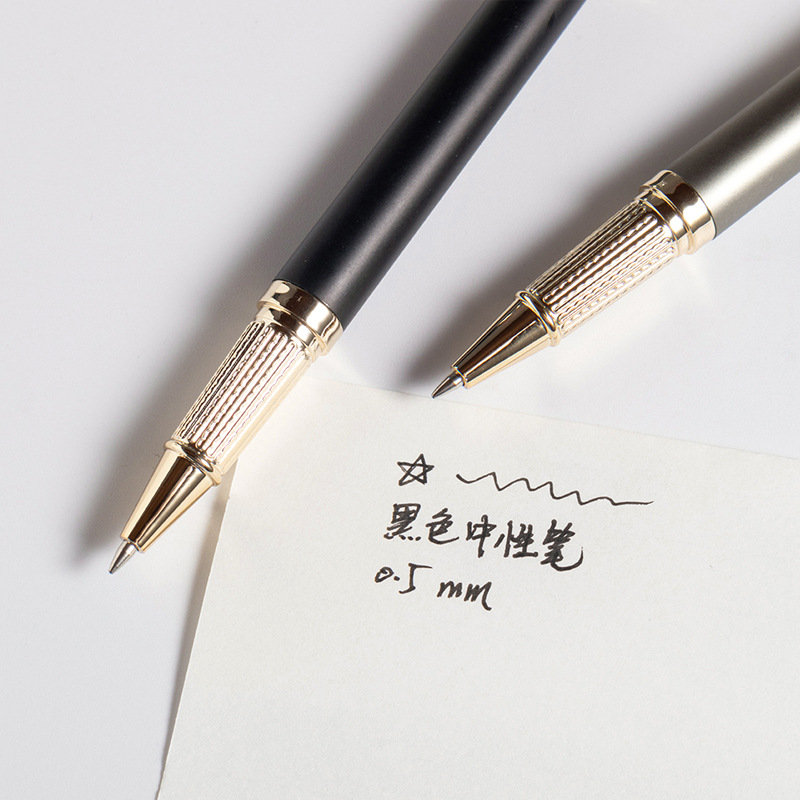 黑色中性笔
0.5 mm